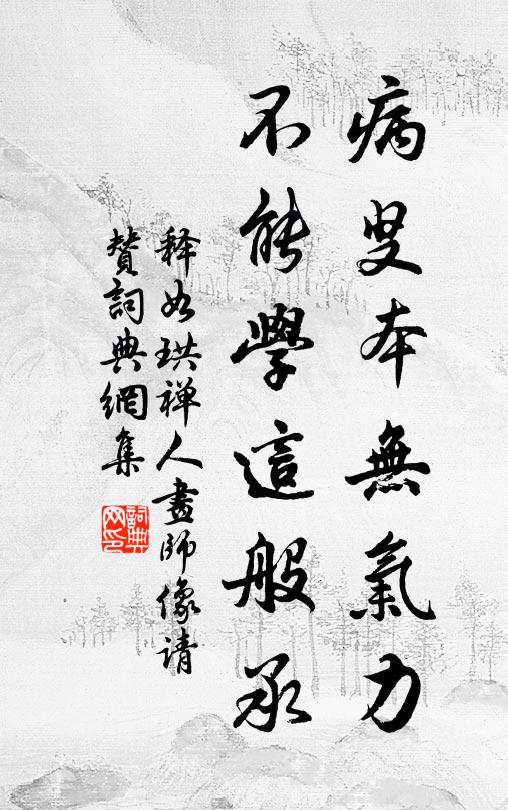 病叟本無氣力
不能學這般承
释如珙禅人畫師像請
賛詞典網集
詞典
网印